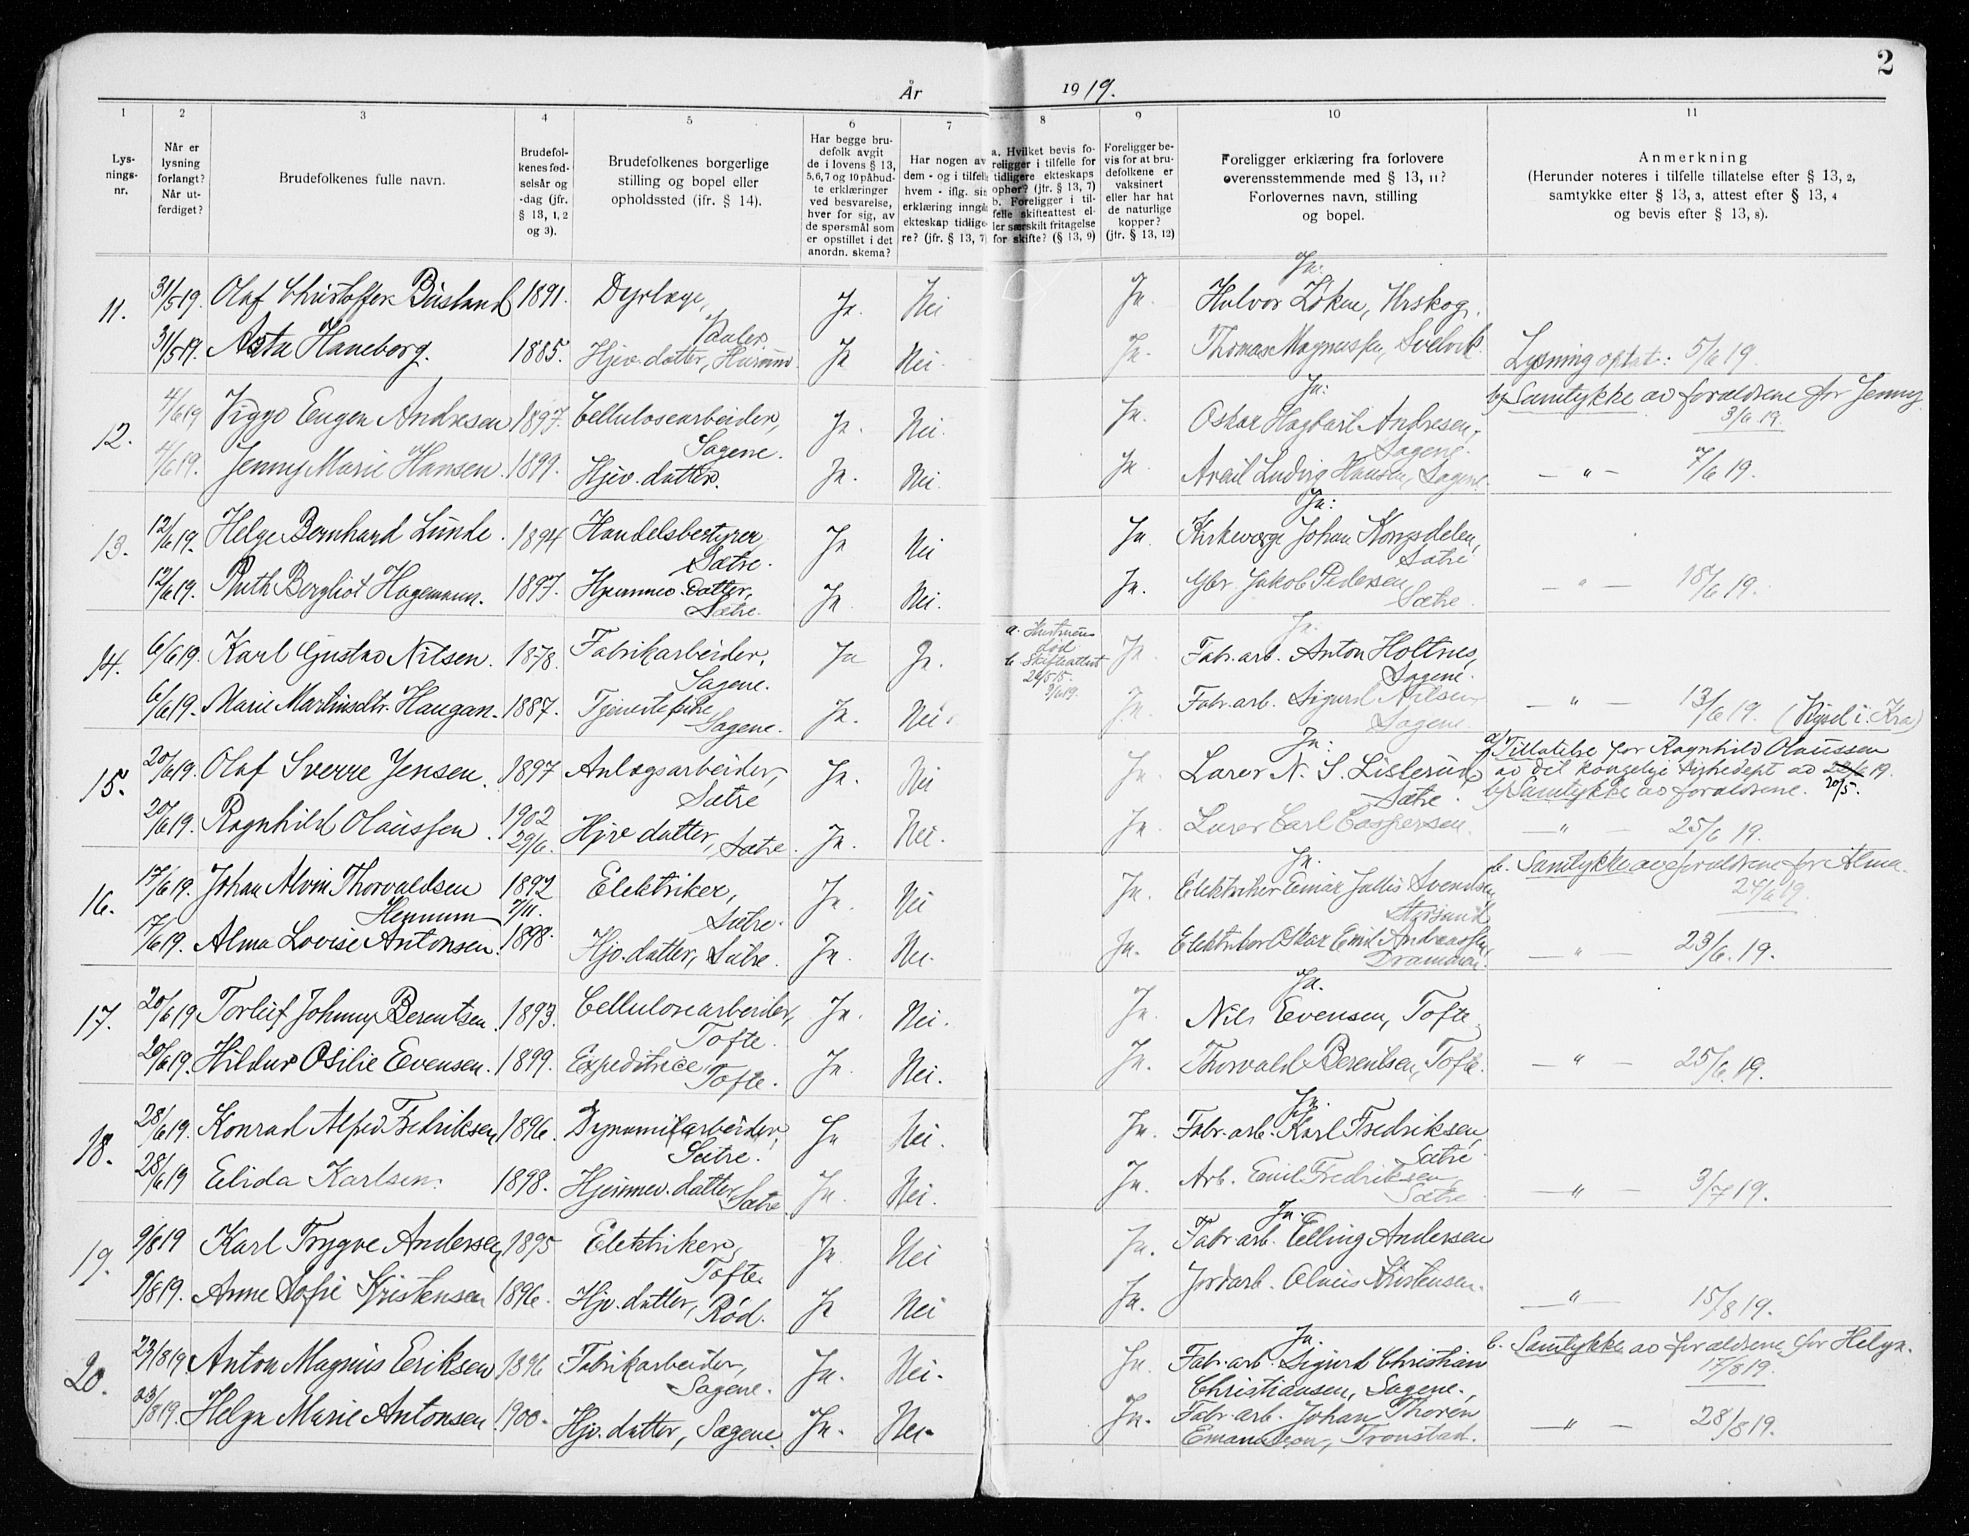 2
År 1919.
1 2 3 4 5 6 7 8 9 10 11
Lys-
nings-
nr.
Når er
lysning
forlangt?
Når ut-
ferdiget?
Brudefolkenes fulle navn.
Brudefol-
kenes fød-
selsår og
-dag (jfr.
§ 13, 1, 2
og 3).
Brudefolkenes borgerlige
stilling og bopel eller
opholdssted (jfr. § 14).
Har begge bru-
defolk avgit
de i lovens § 13,
5, 6, 7 og 10 påbud-
te erklæringer
ved besvarelse,
hver for sig, av
de spørsmål som
er opstillet i det
anordn. skema?
Har nogen av
dem - og i tilfelle
hvem - iflg. sin
erklæring inngå
ekteskap tidlige-
re? (jfr. § 13, 7)
a. Hvilket bevis fo-
religger i tilfelle for
tidligere ekteskaps
ophør? (jfr. § 13, 7)
b. Foreligger i til-
felle skifteattest el-
ler særskilt fritagelse
for skifte? (§ 13, 9)
Foreligger be-
vis for at bru-
defolkene er
vaksinert
eller har hat
de naturlige
kopper?
(jfr. § 13, 12)
Foreligger erklæring fra forlovere
overensstemmende med § 13, 11?
Forlovernes navn, stilling
og bopel.
Anmerkning
(Herunder noteres i tilfelle tillatelse efter § 13, 2,
samtykke efter § 13, 3, attest efter § 13, 4
og bevis efter § 13, 8).
Ja.
11. 31/5 19. Olaf Christoffer Búsland 1891. Dyrlæge, Ja. Nei Ja. Halvor Løken, Urskog.
Våler.
31/5 19. Asta Haneborg. 1885. Hjev. datter, Hurum. Ja Nei. Ja. Thomas Magnussen, Svelvik. Lysning optat: 5/6 19.
Ja: b) Samtykke av forældrene for Jenny
3/6 19.
12. 4/6 19 Viggo Eugen Andresen 1897. Cellulosearbeider, Ja. Nei. Ja. Oskar Hagbart Andresen,
Sagene. Sagene.
4/6 19. Jenny Marie Hansen. 1899. Hjev. datter. Ja. Nei. Ja. Ludvig Hansen, Sagene. — " — 7/6 19.
Ja:
13. 12/6 19. Helge Bernhard Lúnde. 1894 Handelsbestyrer Ja Nei Ja. Kirkeværge Johan Kongsdelen,
Sætre. Sætre
12/6 19. Ruth Borgliot Hagemann. 1897. Hjemmev. datter, Ja. Nei. Ja. Gbr Jakob Pedersen — " — 18/6 19.
Sætre. Sætre.
Ja.
14. 6/6 19. Karl Gustav Nilsen. 1878. Fabrikarbeider, Ja Ja. a. Hustruens Ja. Fabr. arb. Anton Holtnes,
Sagene. død Sagene.
b. Skifteattest
6/6 19. Marie Martinsdtr. Haugan. 1887. Tjenestepike Ja. Nei. Ja. Fabr. arb. Sigurd Nilsen — " — 13/6 19. (Vigsel i Kra)
Sagene. Sagene.
Ja: a) Tillatelse for Ragnhild Olaússen
15. 20/6 19. Olaf Sverre Jensen. 1897 Anlægsarbeider, Ja. Nei Ja. Lærer N. S. Lislerud av det kongelige
Sætre Sætre. b) Samtykke av forældrene. 20/5.
20/6 19. Ragnhild Olaússen. 1902 Hjev datter, Sætre. Ja. Nei. Ja. Lærer Carl Caspersen. — " — 25/6 19.
29/6.
Ja. b. Samtykke av forældrene for Alma.
24/6 19.
16. 17/6 19. Johan Alvin Thorvaldsen 1892 Elektriker, Ja. Nei Ja. Elektriker Einar Svendsen
Hennum 7/11. Sætre.
17/6 19. Alma Lovise Antonsen. 1898. Hjv. datter, Sætre. Ja. Nei. Ja. Elektriker Oskar Emil Andreassen, — " — 23/6. 19.
Drammen.
Ja.
17. 20/6 19 Torleif Johnny Berentsen. 1893. Cellulosearbeider, Ja. Nei. Ja. Nils Evensen, Tofte.
Tofte.
20/6 19. Hildur Osilie Evensen. 1899. Expeditrice Ja. Nei. Ja. Thorvald Berentsen, Tofte. — " — 25/6. 19.
Tofte.
Ja.
18. 28/6 19. Konrad Alfred Fredriksen 1896. Dynamitarbeider, Ja Nei. Ja. Fabr. arb. Karl Fredriksen,
Sætre. Sætre
28/6 19 Elida Karlsen. 1898. Hjemmev. datter Ja. Nei. Ja. Arb. Emil Fredriksen, — " — 3/7 19.
Sætre. Sætre.
Ja.
19. 9/8 19 Karl Trygve Andersen 1895 Elektriker, Ja. Nei Ja. Fabr. arb. Elling Andersen
Tofte.
9/8 19. Anne Sofie Kristensen 1896. Hjv. datter, Rød. Ja Nei Ja. Jordarb. Olaús Kristensen. — " — 15/8 19.
Ja. b. Samtykke av forældrene for Helga.
17/8 19.
20. 23/8 19 Anton Magnús Eriksen 1896 Fabrikarbeider, Ja. Nei. Ja. Fabr. arb. Sigurd Christian
Sagene. Christiansen, Sagene.,
23/8 19. Helga Marie Antonsen. 1900. Hjv. datter, Sagene. Ja. Nei. Ja. Fabr. arb. Johan Thoren — " — 28/8 19.
Emanuelson, Tronstad.